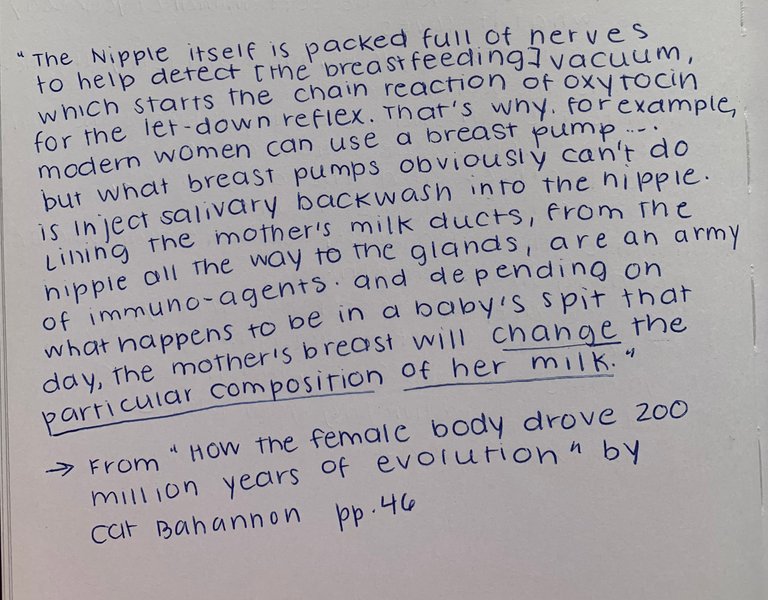 "The Nipple itself is packed full of nerves
to help detect [the breastfeeding] vacuum,
which starts the chain reaction of oxytocin
for the let-down reflex. That's why. for example,
modern women can use a breast pump ....
but what breast pumps obviously can't do
is inject salivary backwash into the nipple.
Lining the mother's milk ducts, from the
nipple all the way to the glands, are an army
of immuno-agents. and depending on
what happens to be in a baby's spit that
day, the mother's breast will change the
particular composition of her milk."
→ From "How the female body drove 200
million years of evolution" by
Cat Bahannon pp.46